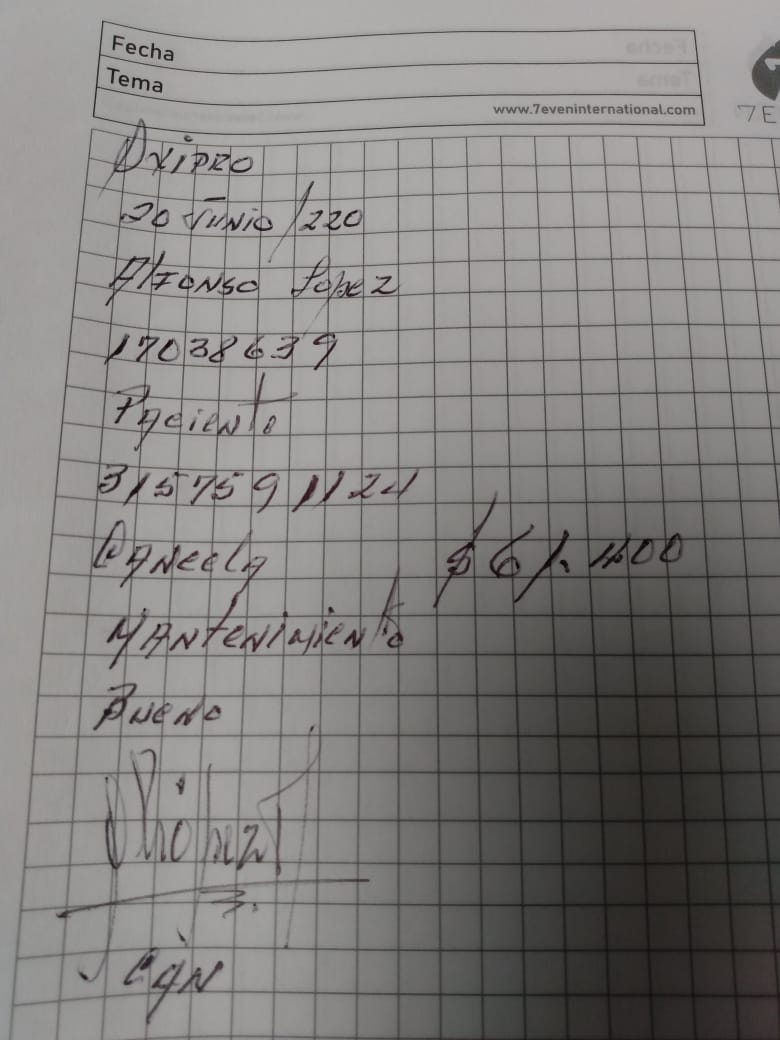 Fecha
Tema
www.7eveninternational.com
7E
Oxipro
20 Junio/220
Alfonso Lopez
17038639
Paciento
3157591124
Cancela $61.400
Mantenimiento
Bueno